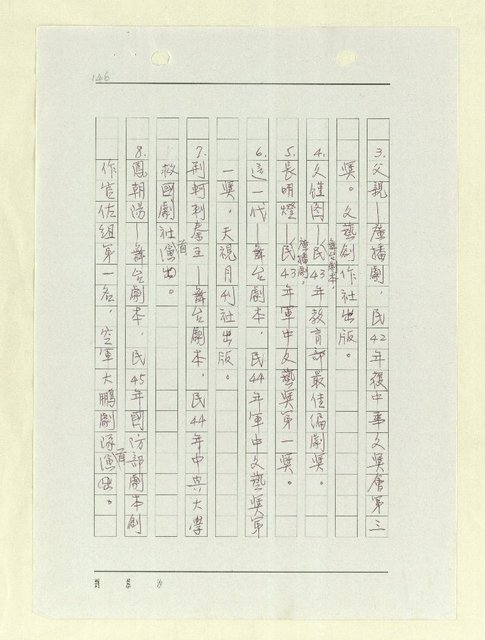 146
3.父親—廣播劇,民42年獲中華文獎會第三
獎。文藝創作社出版。
4.父憶圖—舞台劇本,民43年教育部最佳編劇獎。
5.長明燈—廣播劇,民43年軍中文藝獎第一獎。
6.這一代—舞台劇本,民44年軍中文藝獎第
一獎,天視月刊社出版。
7.荊軻刺秦王—舞台劇本,民44年中興大學
救國劇社首演出。
8.鳳朝陽—舞台劇本,民45年國防部劇本創
作官佐組第一名,空軍大鵬劇隊首演出。